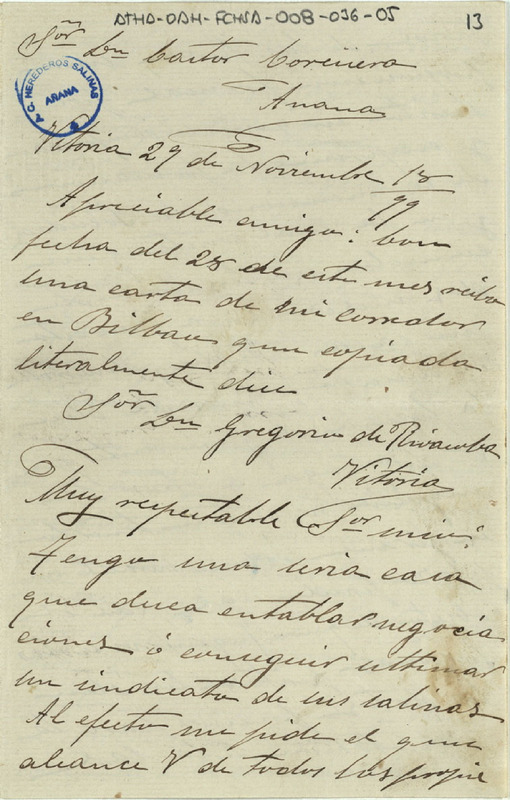 ATHA-DAH-FCHSA-008-036-05
13
Sor. Dn Castor
Anana
A. C. HEREDEROS SALINAS
AÑANA
Vitoria 29 de Noviembre 18
99
Apreciable amigo: Con
fecha del 28 de este mes recibo
una carta de mi corredor
en Bilbao que copiada
literalmente dice
Sor. Dn Gregorio de Rivacoba
Vitoria
Muy respetable Sor mio:
Tengo una seria casa
que desea entablar negocia
ciones ó conseguir ultimar
un sindicato de sus salinas
Al efecto me pide el que
alcance V de todos los propie